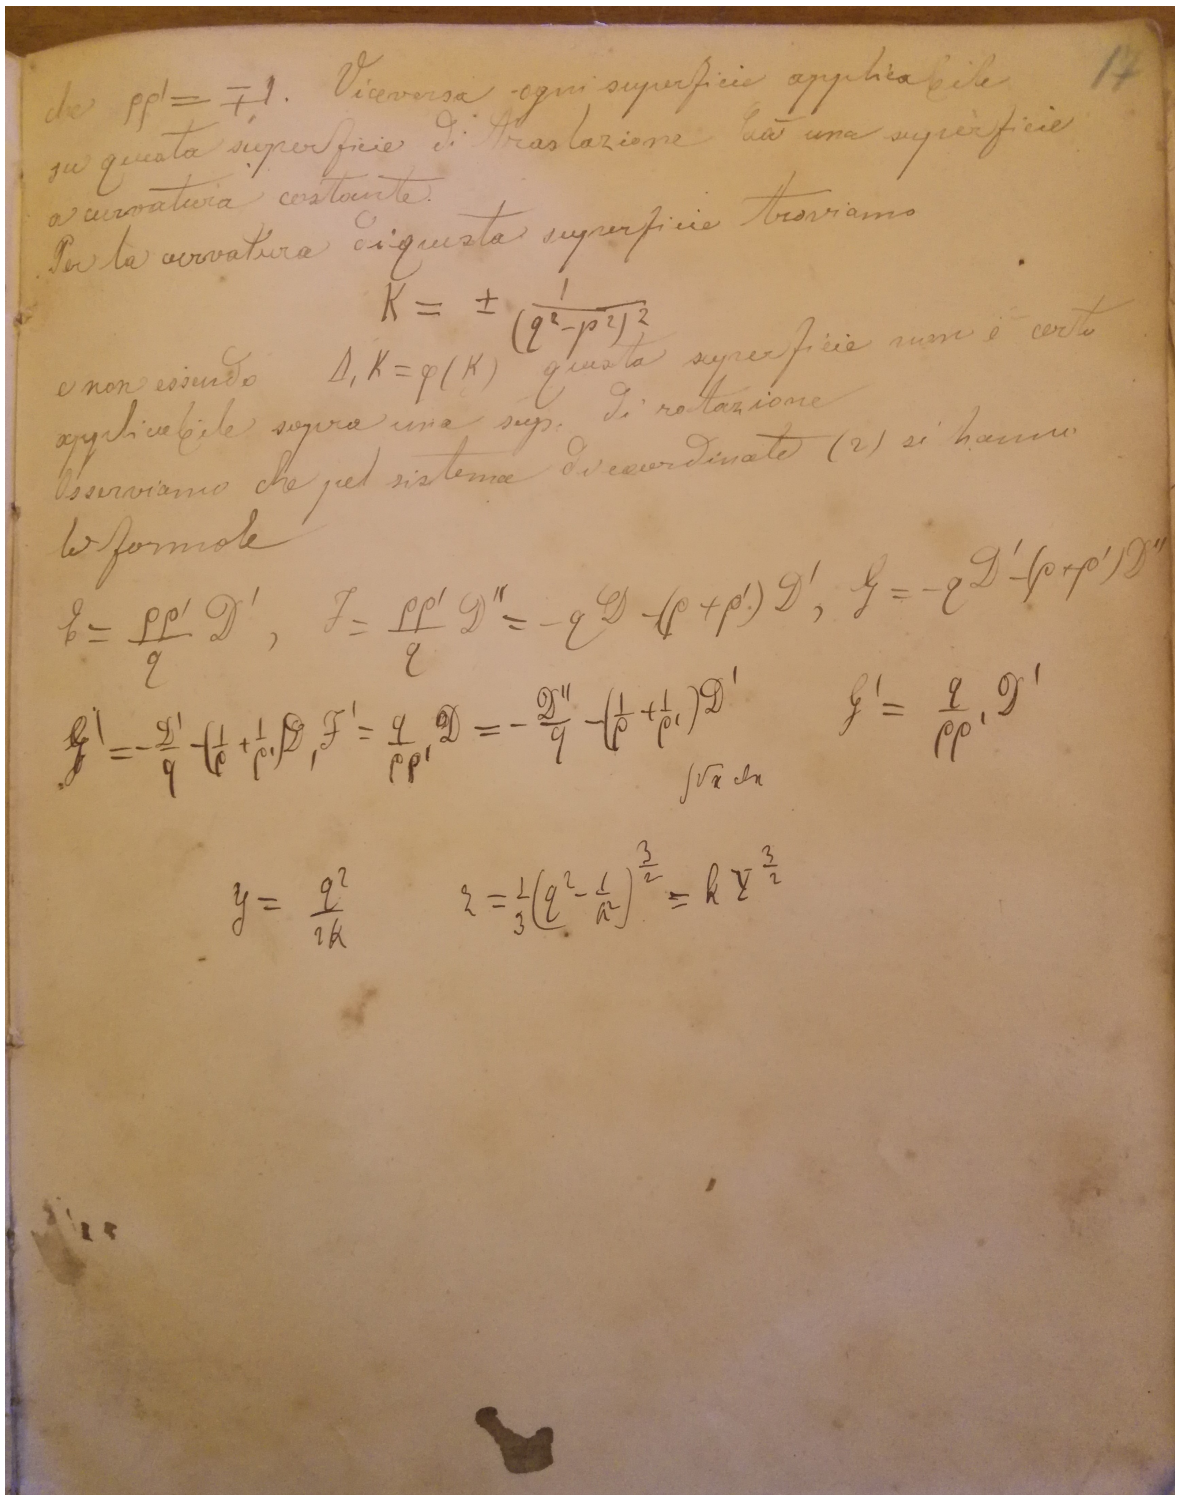 17
che ρρ' = ∓1. Viceversa ogni superficie applicabile
su questa superficie di traslazione dà una superficie
a curvatura costante.
Per la curvatura di questa superficie troviamo
K = ± 1/(q²-p²)²
e non essendo Δ₁K = φ(K) questa superficie non è certo
applicabile sopra una sup. di rotazione
Osserviamo che pel sistema di coordinate (2) si hanno
le formole
E = ρρ'/q D', F = ρρ'/q D'' = -qD-(ρ+ρ')D', G = -qD'-(ρ+ρ')D''
G' = -D'/q -(1/ρ+1/ρ')D, F' = q/ρρ' D = -D''/q -(1/ρ+1/ρ')D' G' = q/ρρ' D'
∫√x dx
y = q²/2k z = 1/3(q²-1/k²)^3/2 = k Y^3/2